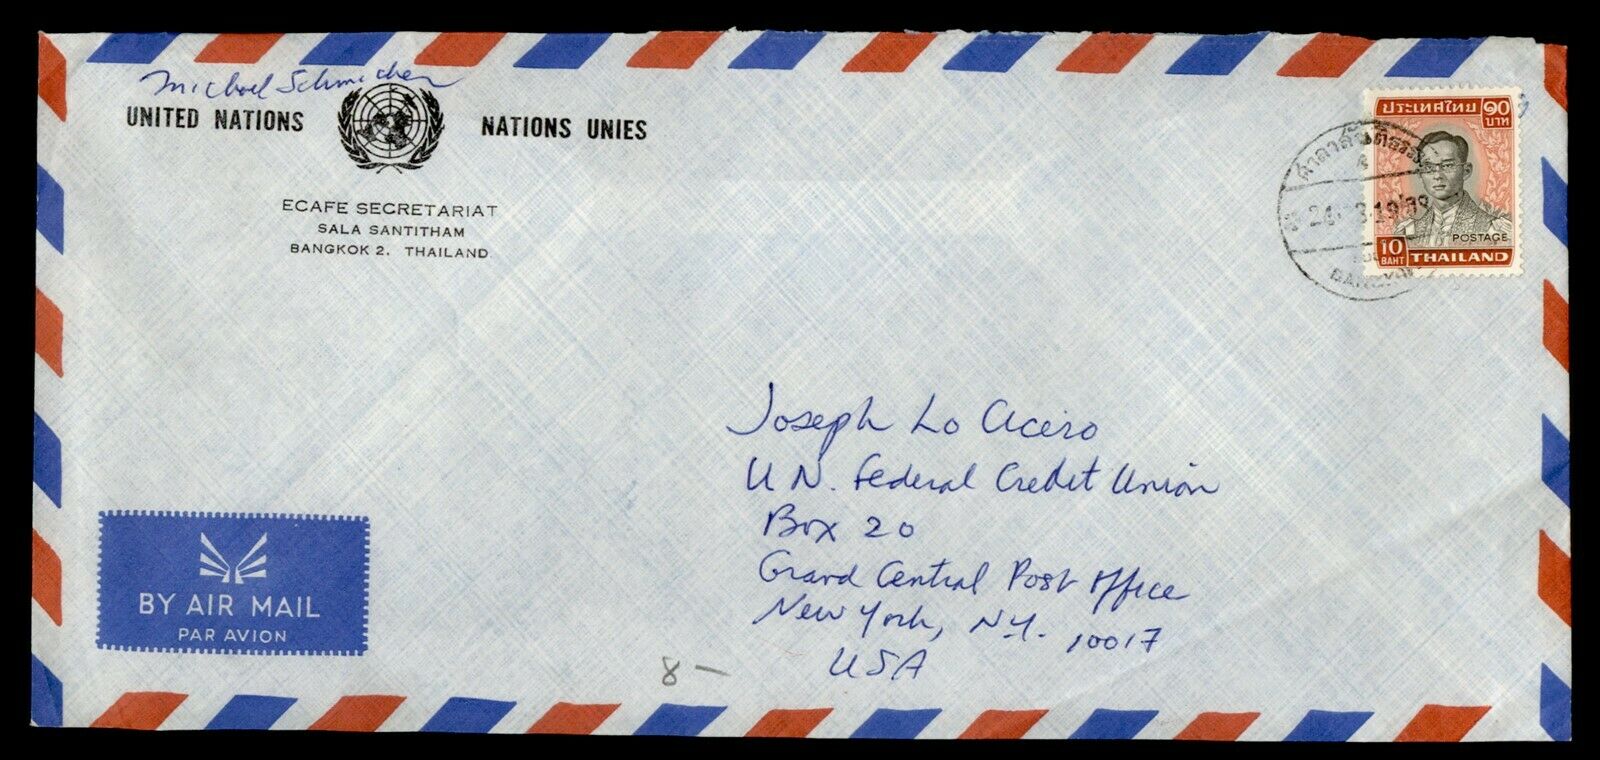 Michael Schmicher
UNITED NATIONS NATIONS UNIES
ECAFE SECRETARIAT
SALA SANTITHAM
BANGKOK 2. THAILAND
ประเทศไทย ๑๐
บาท
POSTAGE
10
BAHT THAILAND
BANGKOK
Joseph Lo Acero
U N. Federal Credit Union
Box 20
Grand Central Post Office
New York, N.Y. 10017
USA
BY AIR MAIL
PAR AVION
8 –